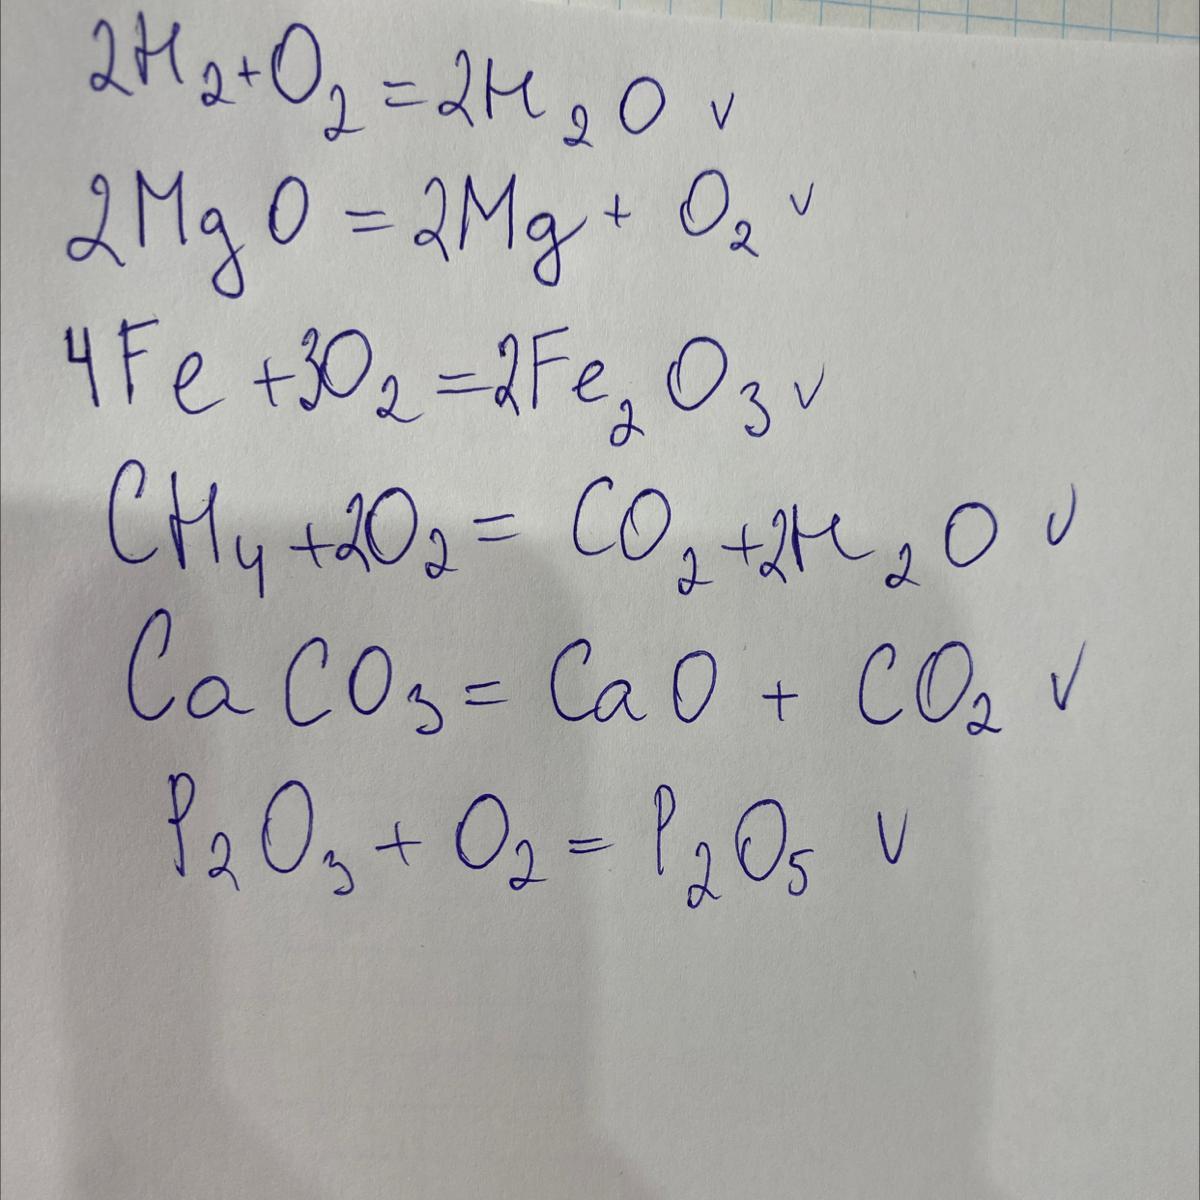 2H₂+O₂=2H₂O v
2MgO=2Mg+O₂ v
4Fe+3O₂=2Fe₂O₃ v
CH₄+2O₂=CO₂+2H₂O v
CaCO₃=CaO+CO₂ v
P₂O₃+O₂=P₂O₅ v